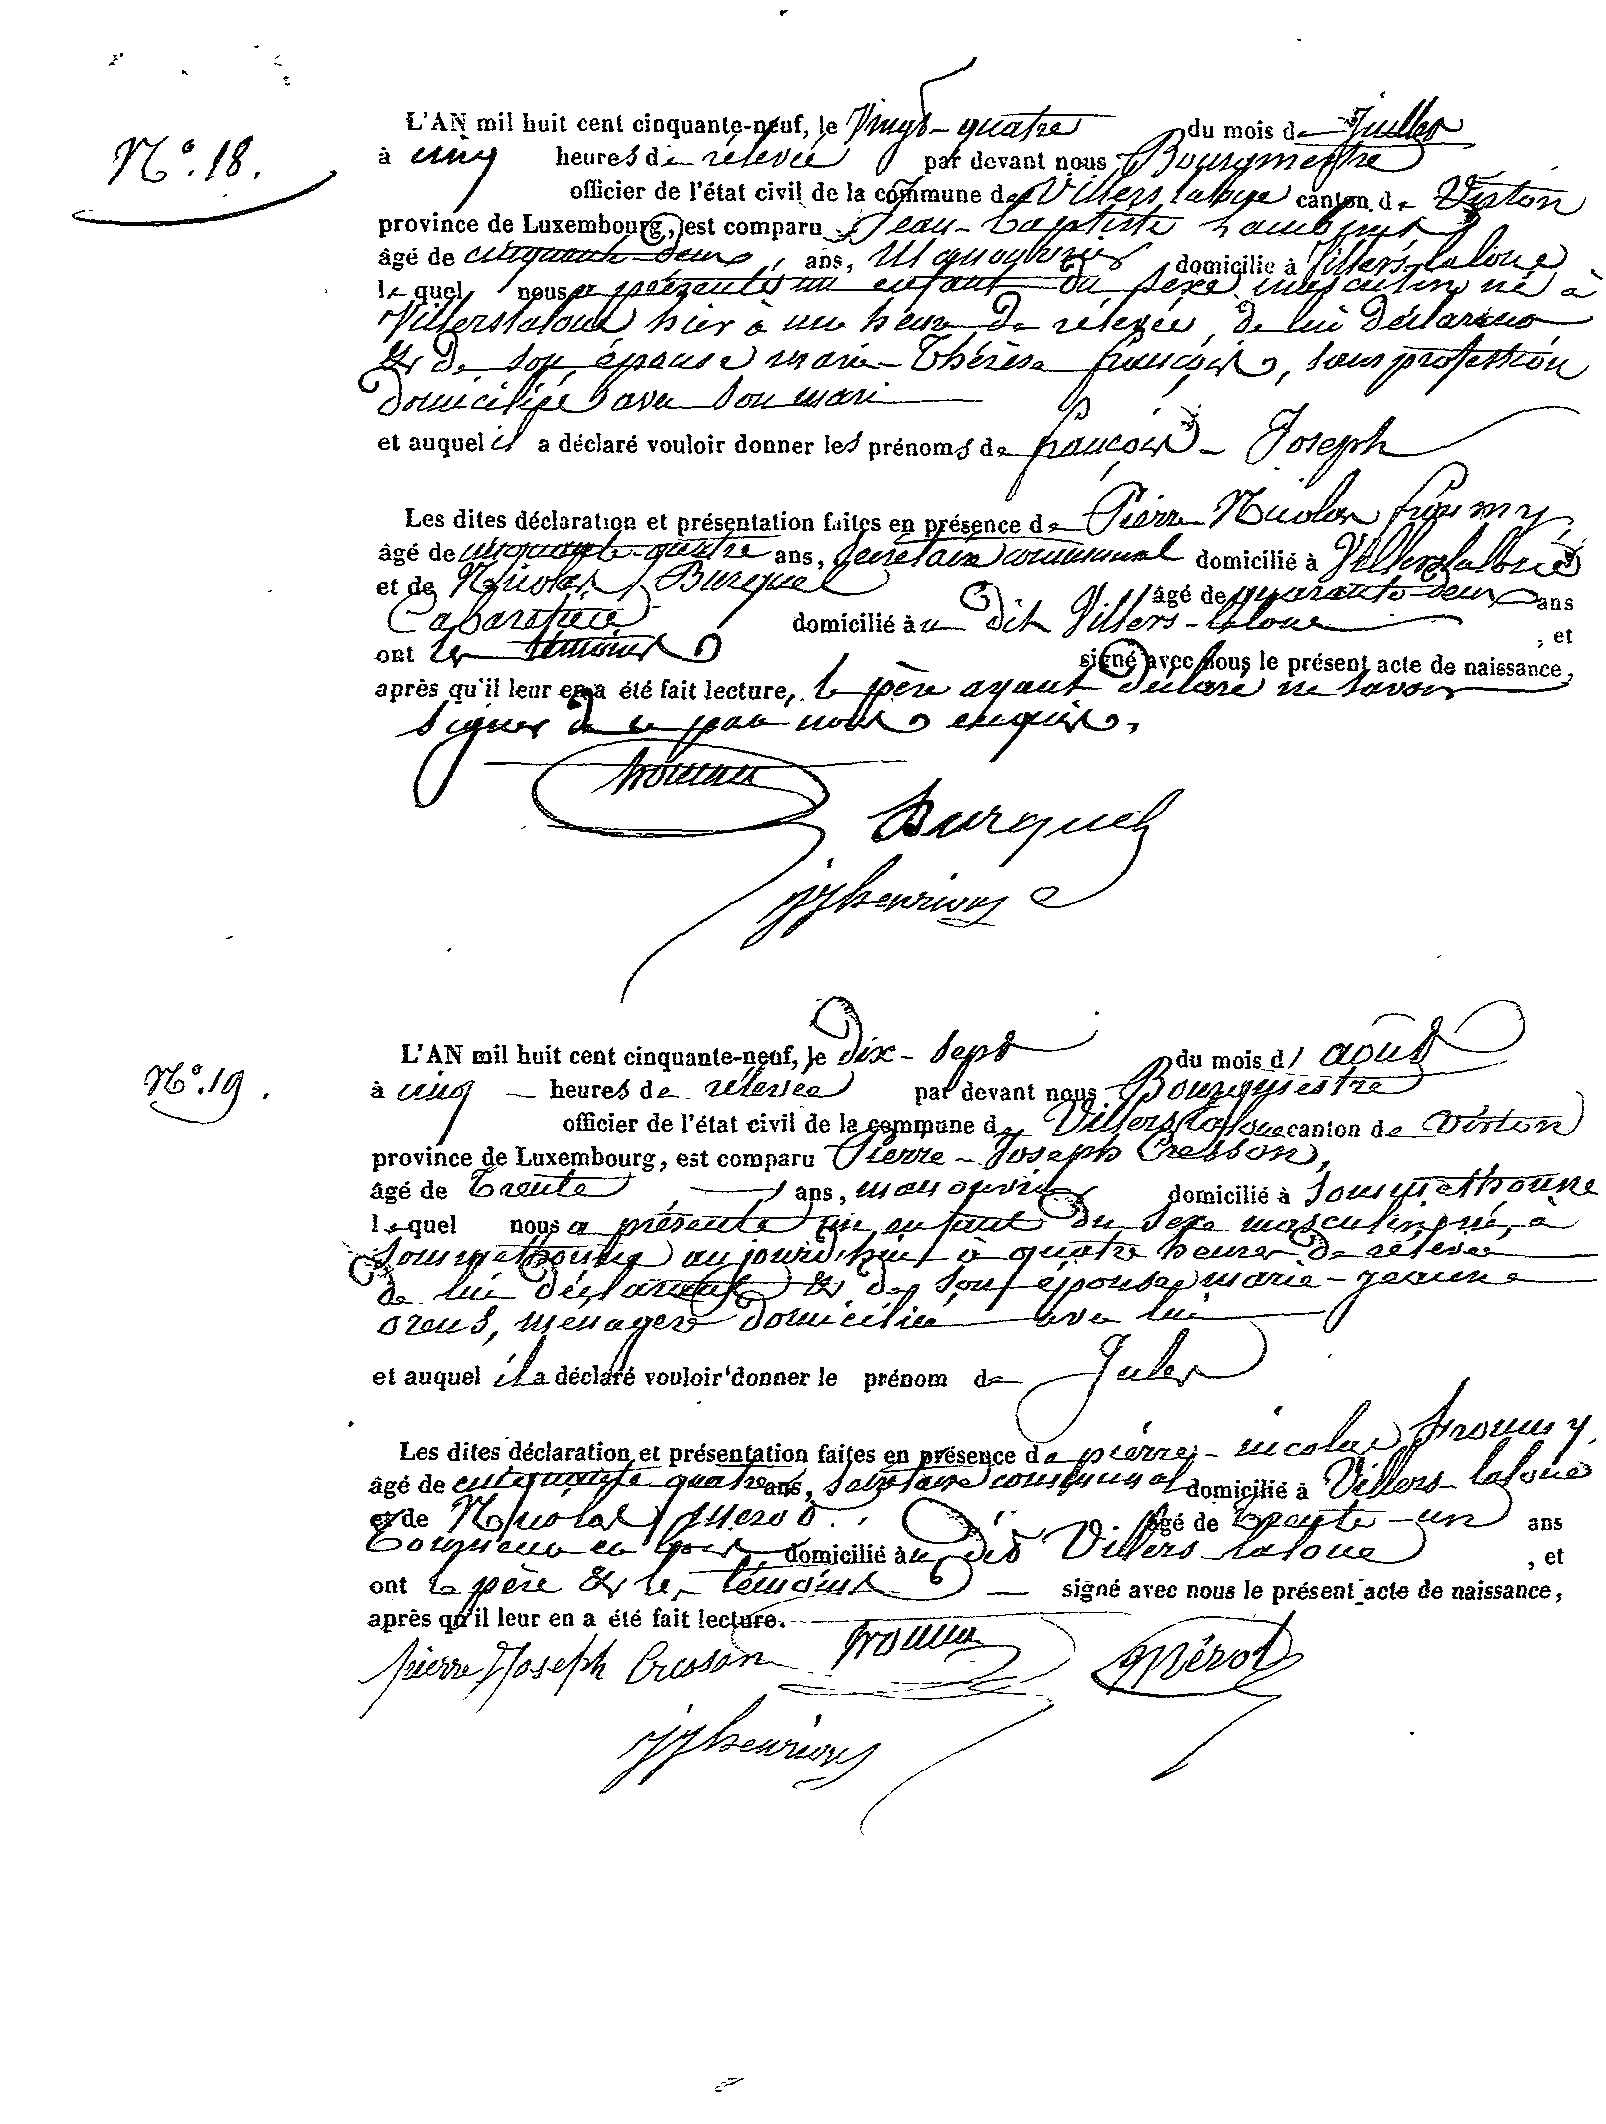 N°. 18.
L'AN mil huit cent cinquante-neuf, le Vingt-quatre du mois de Juillet
à cinq heures de rélevée par devant nous Bourgmestre
officier de l'état civil de la commune de Villers laloue canton de Virton
province de Luxembourg, est comparu Jean-Baptiste Lambinet
âgé de cinquante-deux, ans, Manouvrier domicilié à Villers-laloue
lequel nous a présenté un enfant du sexe masculin né à
Villerslaloue, hier à une heure de rélevée, de lui déclarant
& de son épouse marie-Thérèse françois, sans profession
domiciliée avec son mari
et auquel il a déclaré vouloir donner les prénoms de françois-Joseph
Les dites déclaration et présentation faites en présence de Pierre Nicolas froumy,
âgé de cinquante-quatre ans, secrétaire communal domicilié à Villers laloue
et de Nicolas Burquel âgé de quarante-deux ans
Cabaretier domicilié à u dit Villers-laloue , et
ont les témoins signé avec nous le présent acte de naissance,
après qu'il leur en a été fait lecture, le père ayant déclaré ne savoir
signer de ce par nous enquis.
Burquel
jjhenrion
N°. 19.
L'AN mil huit cent cinquante-neuf, le dix-sept du mois d' août
à cinq heures de rélevée par devant nous Bourgmestre
officier de l'état civil de la commune de Villers laloue canton de Virton
province de Luxembourg, est comparu Pierre-Joseph Cresson,
âgé de Trente ans, manouvrier domicilié à Sommethonne
lequel nous a présenté un enfant du sexe masculin, né, à
Sommethonne aujourd'hui à quatre heures de rélevée
de lui déclarant & de son épouse marie-jeanne
, menagere domiciliée avec lui
et auquel il a déclaré vouloir donner le prénom de Jules
Les dites déclaration et présentation faites en présence de pierre-nicolas froumy,
âgé de cinquante quatre ans, secrétaire communal domicilié à Villers-laloue
et de Nicolas âgé de Trente-un ans
domicilié à u dit Villers-laloue , et
ont le père & les témoins signé avec nous le présent acte de naissance,
après qu'il leur en a été fait lecture.
pierre Joseph Cresson
jjhenrion